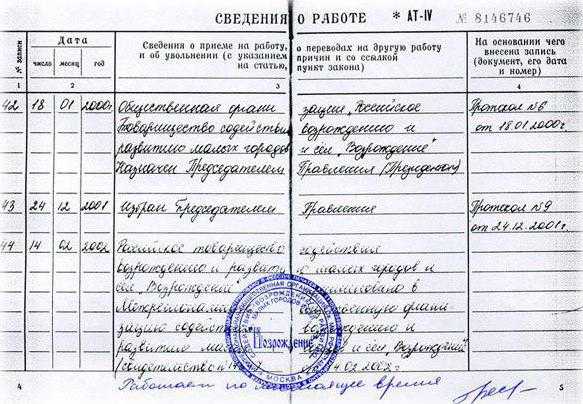 СВЕДЕНИЯ О РАБОТЕ * АТ-IV № 8146746
№ записи
Дата
число месяц год
Сведения о приеме на работу, о переводах на другую работу
и об увольнении (с указанием причин и со ссылкой
на статью, пункт закона)
На основании чего
внесена запись
(документ, его дата
и номер)
1 2 3 4
42 18 01 2000г. Общественная органи зация "Российское Протокол №6
Товарищество содействия возрождению и от 18.01.2000г.
развитию малых городов и сёл "Возрождение"
Назначен Председателем Правления (Президентом)
43 24 12 2001 Избран Председателем Правления Протокол №9
от 24.12.2001г.
44 14 02 2002 Российское товарищество содействия
возрождению и развити малых городов и
сёл "Возрождение" в
Межрегиональ организацию
зацию содейст возрождению и
развитию мал и сёл "Возрождение"
(свидетельство 14.02.2002г
Возрождение
МОСКВА
4 Работает по настоящее время 5